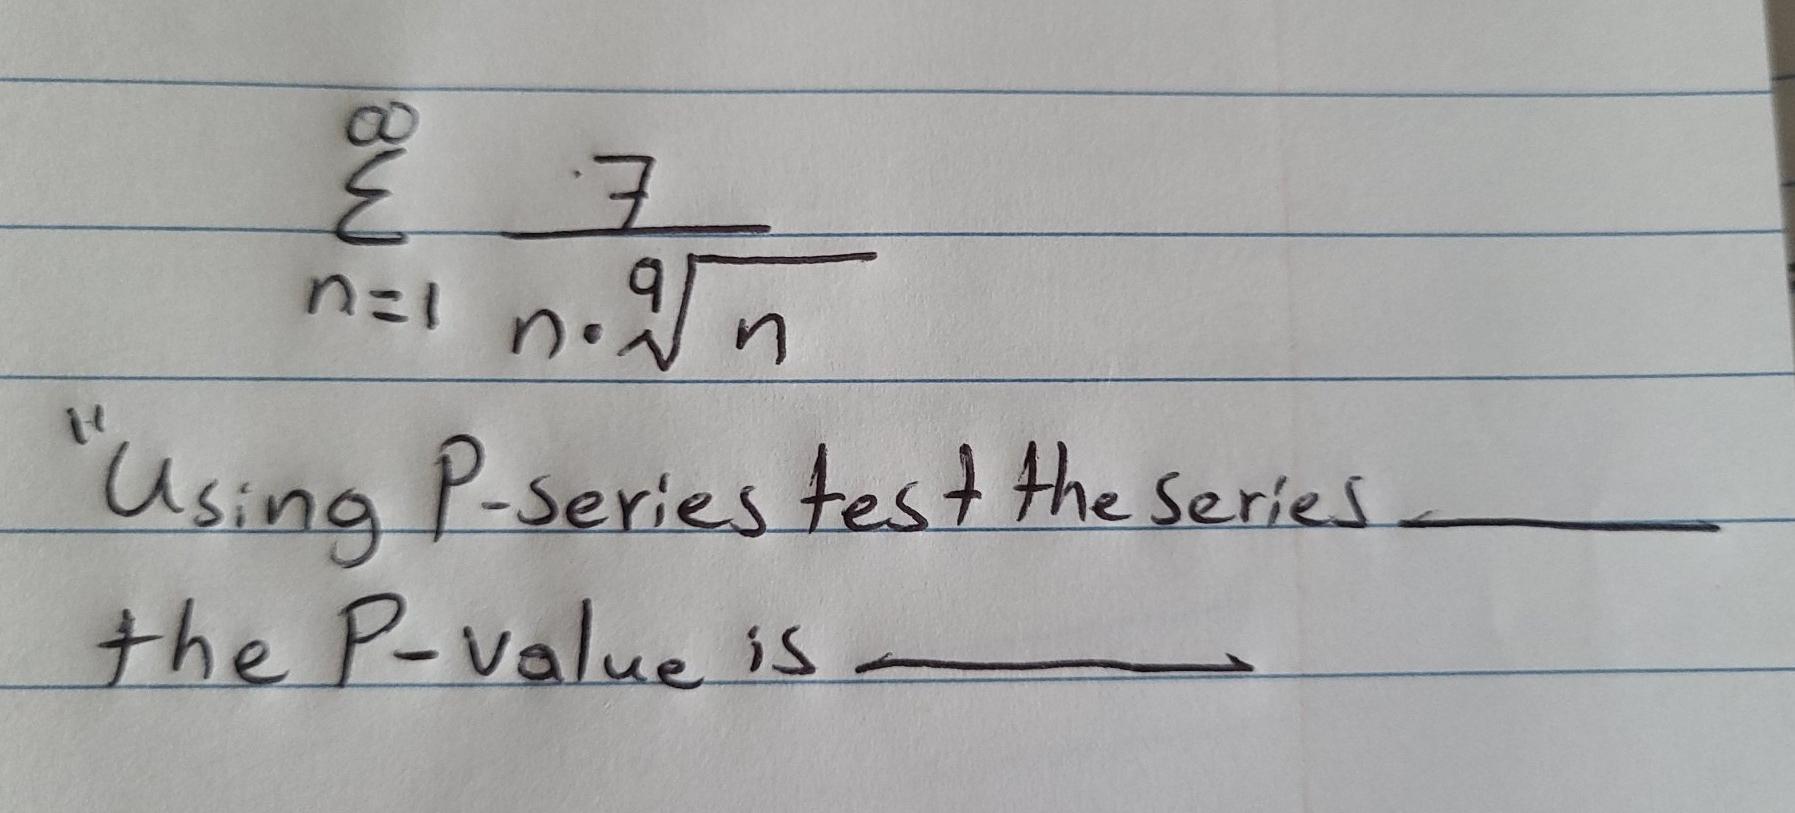 ∞
Σ 7
n=1 n·⁹√n
"Using P-series test the series ______
the P-value is ______